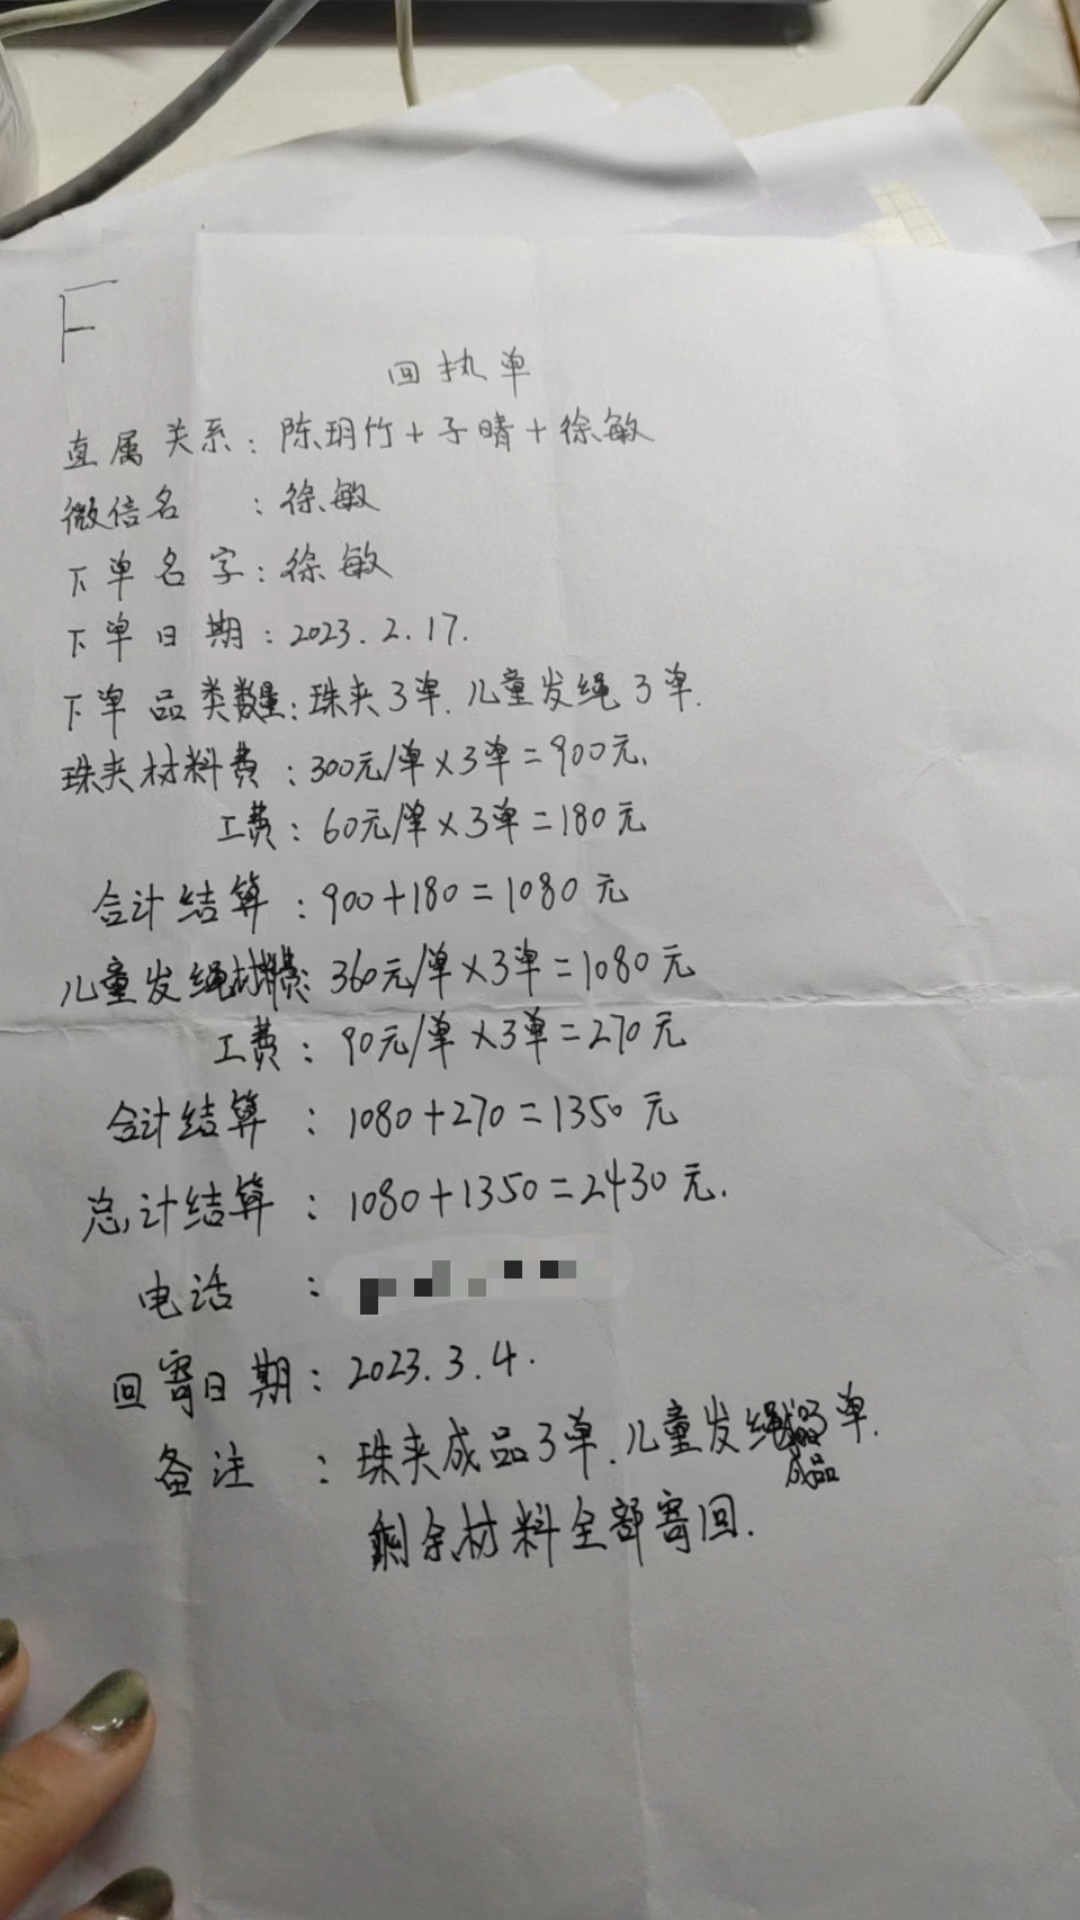 F
回执单
直属关系：陈玥竹+子晴+徐敏
微信名：徐敏
下单名字：徐敏
下单日期：2023.2.17.
下单品类数量：珠夹3单.儿童发绳3单.
珠夹材料费：300元/单×3单=900元.
工费：60元/单×3单=180元
合计结算：900+180=1080元
儿童发绳材料费：360元/单×3单=1080元
工费：90元/单×3单=270元
合计结算：1080+270=1350元
总计结算：1080+1350=2430元.
电话：
回寄日期：2023.3.4.
备注：珠夹成品3单.儿童发绳 单.
成品
剩余材料全部寄回.